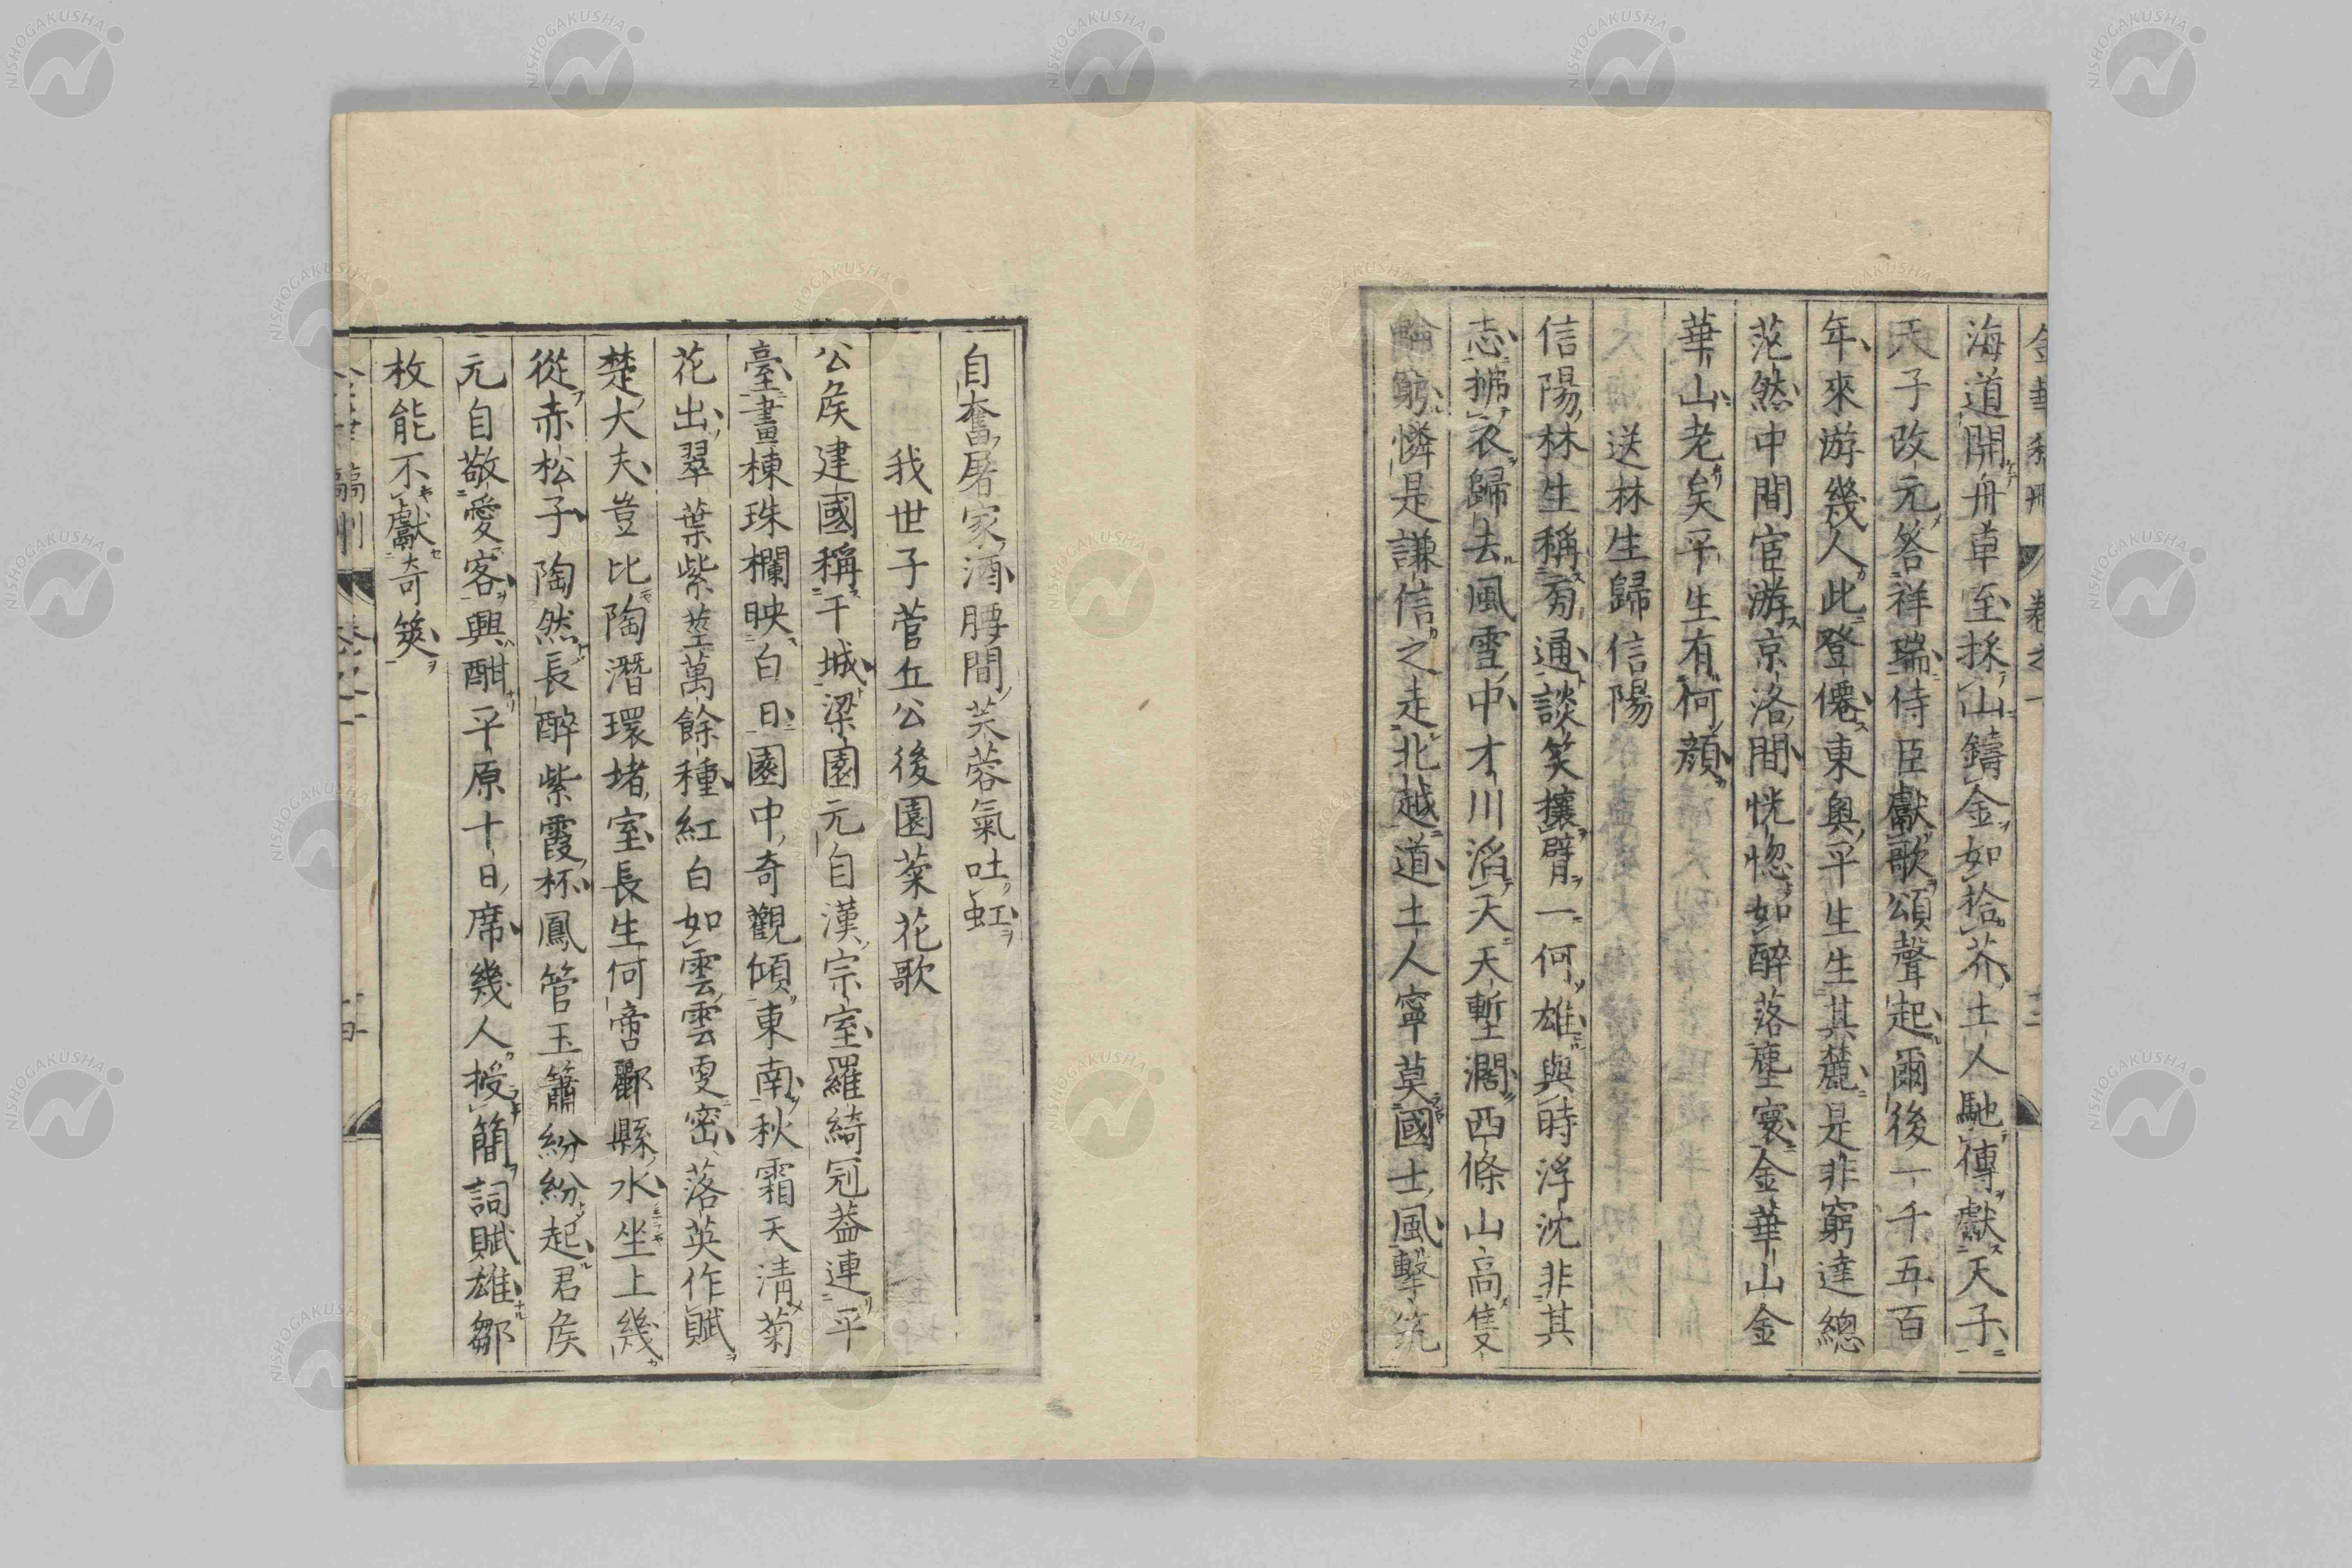 海道開舟車至採山鑄金如拾芥土人馳傳獻天子
天子改元答祥瑞侍臣獻歌頌聲起爾後一千五百
年來游幾人此登僊東奧平生生其麓是非窮達總
茫然中間宦游京洛間恍惚如醉落塵寰金華山金
華山老矣平生有何顏
送林生歸信陽
信陽林生稱有通談笑攘臂一何雄與時浮沈非其
志拂衣歸去風雪中才川滔天天塹濶西條山高隻
輪窮憐是謙信之走北越道土人寧莫國士風擊筑
自奮屠家酒腰間芙蓉氣吐虹
我世子菅丘公後園菊花歌
公侯建國稱干城梁園元自漢宗室羅綺冠蓋連平
臺畫棟珠欄映白日園中奇觀傾東南秋霜天清菊
花出翠葉紫莖萬餘種紅白如雲雲更密落英作賦
楚大夫豈比陶潛環堵室長生何啻酈縣水坐上幾
從赤松子陶然長醉紫霞杯鳳管玉簫紛紛起君侯
元自敬愛客興酣平原十日席幾人授簡詞賦雄鄒
枚能不獻奇筴
NISHOGAKUSHA